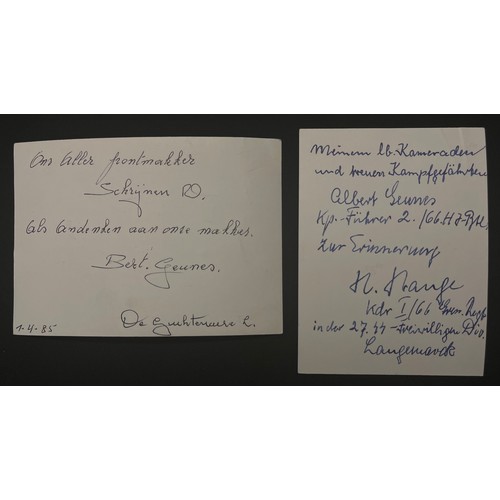 Ons Aller frontmakker
Schrijnen R.
Als Andenken aan onze makker.
Bert. Geunes.
1-4-85
Meinem lb. Kameraden
und treuen Kampfgefährten
Albert Geunes
Kp.-Führer 2./66.HJ-Btl.
zur Erinnerung
Kdr I/66 Gren. Regt
in der 27. SS-Freiwilligen Div.
Langemarck